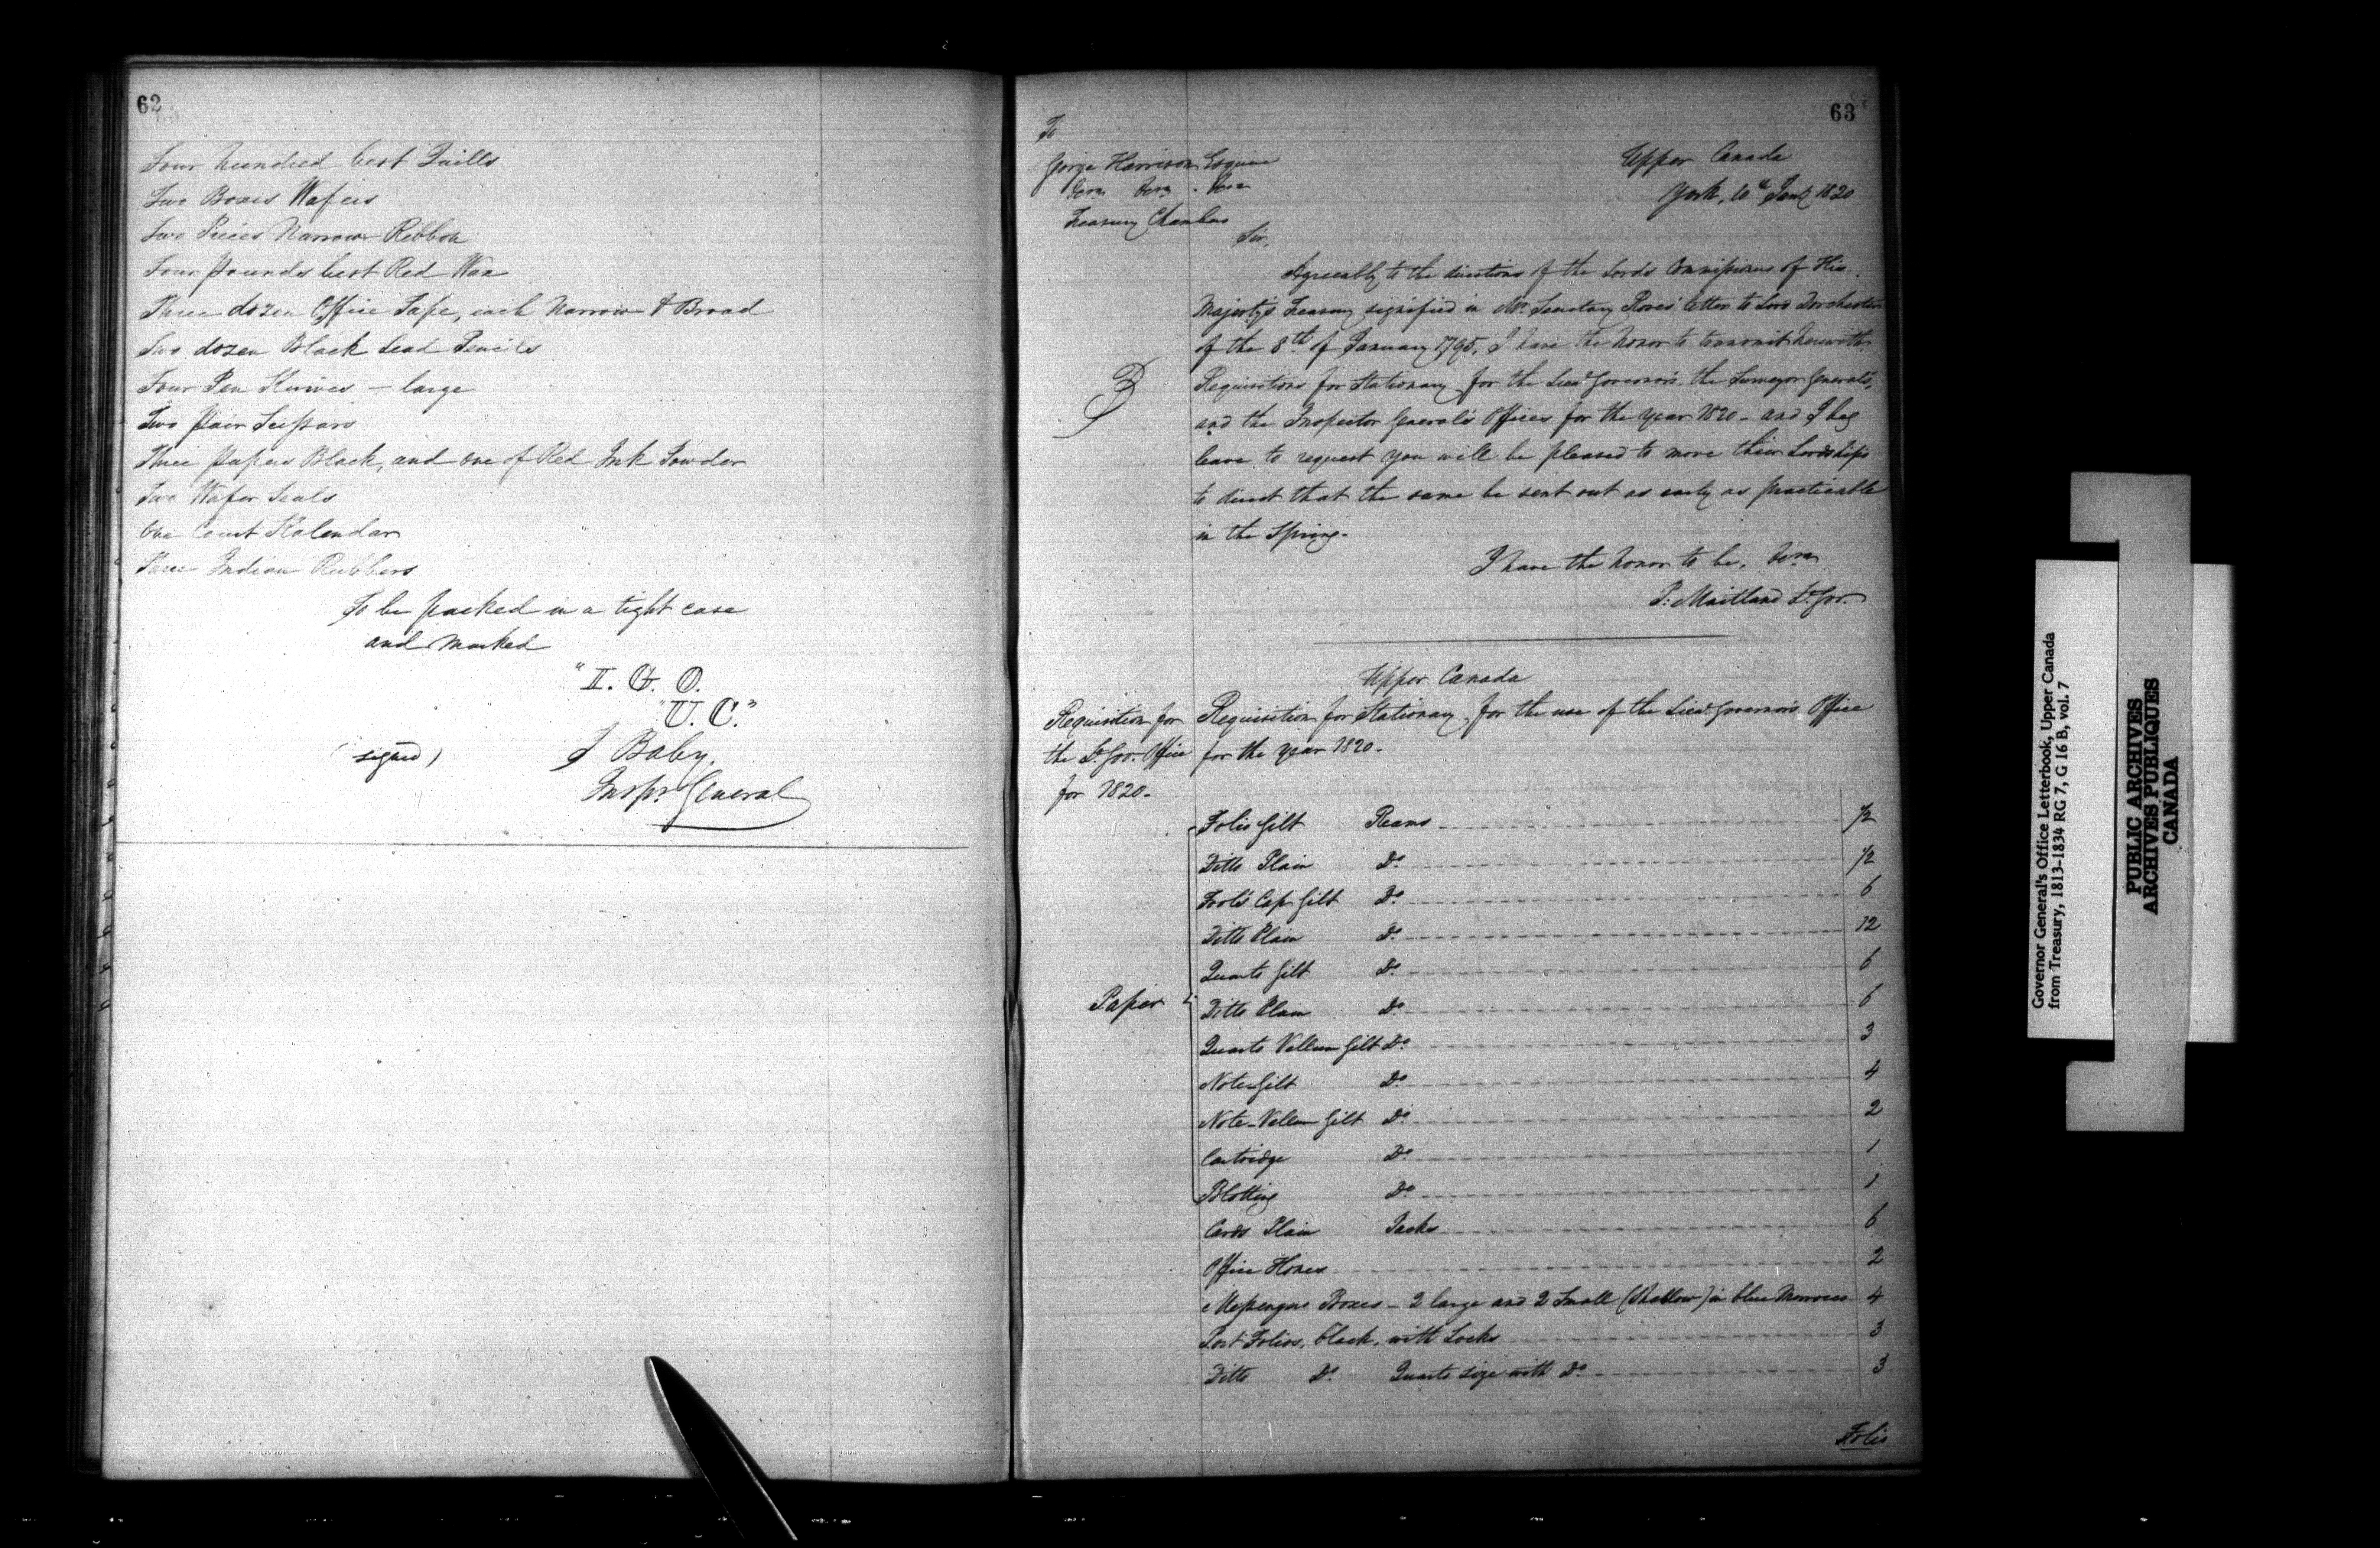 62
Four hundred best Quills
Two Boxes Wafers
Two Pieces Narrow Ribbon
Four pounds best Red Wax
Three dozen Office Tape, each Narrow & Broad
Two dozen Black Lead Pencils
Four Pen Knives - large
Two Pair Scissars
Three papers Black, and one of Red Ink Powder
Two Wafer Seals
One Court Kalendar
Three Indian Rubbers
To be packed in a tight case
and Marked
"I. G. O.
"U. C."
(signed) J Baby,
Inspr. General
63
To
George Harrison Esquire
Treasury Chambers
Upper Canada
York, 10th Jany 1820
Sir,
Agreeably to the directions of the Lords Commissioners of His
Majesty's Treasury signified in Mr. Secretary Roses' letter to Lord Dorchester
of the 8th of January 1795, I have the honor to transmit herewith
Requisitions for Stationary for the Lieut Governor's, the Surveyor General's,
and the Inspector General's Offices for the year 1820 - and I beg
leave to request you will be pleased to move their Lordships
to direct that the same be sent out as early as practicable
in the Spring.
I have the honor to be, &c.
P: Maitland Lt. Gov.
Upper Canada
Requisition for
the Lt. Gov. Office
for 1820.
Requisition for Stationary for the use of the Lieut Governor's Office
for the year 1820.
Paper
Folio Gilt Reams 1/2
Ditto Plain Do. 1/2
Fools Cap Gilt Do. 6
Ditto Plain Do. 12
Quarto Gilt Do. 6
Ditto Plain Do. 6
Quarto Vellum Gilt Do. 3
Note Gilt Do. 4
Note Vellum Gilt Do. 2
Cartridge Do. 1
Blotting Do. 1
Cards Plain Packs 6
Office Hones 2
Messengers Boxes - 2 large and 2 Small (Shallow) in blue Morrocco 4
Port Folios, black, with Locks 3
Ditto Do. Quarto size with Do. 3
Folio
Governor General's Office Letterbook, Upper Canada
from Treasury, 1813-1834 RG 7, G 16 B, vol. 7
PUBLIC ARCHIVES
ARCHIVES PUBLIQUES
CANADA